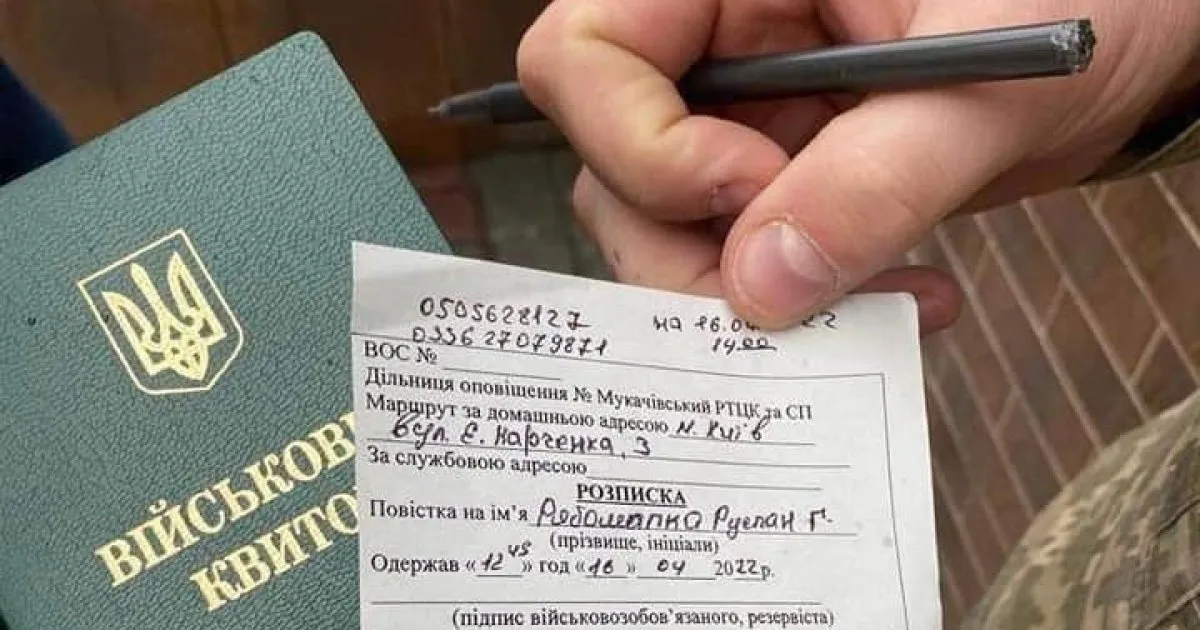 ВІЙСЬКОВ
КВИТО
0505628127
на 16.04 22
0336 27079871
14.00
ВОС №
Дільниця оповіщення № Мукачівський РТЦК та СП
Маршрут за домашньою адресою м. Київ
вул. Є. Харченка, 3
За службовою адресою
РОЗПИСКА
Повістка на ім'я Руслан Г.
(прізвище, ініціали)
Одержав «12 45» год «16» 04 2022р.
(підпис військовозобов'язаного, резервіста)